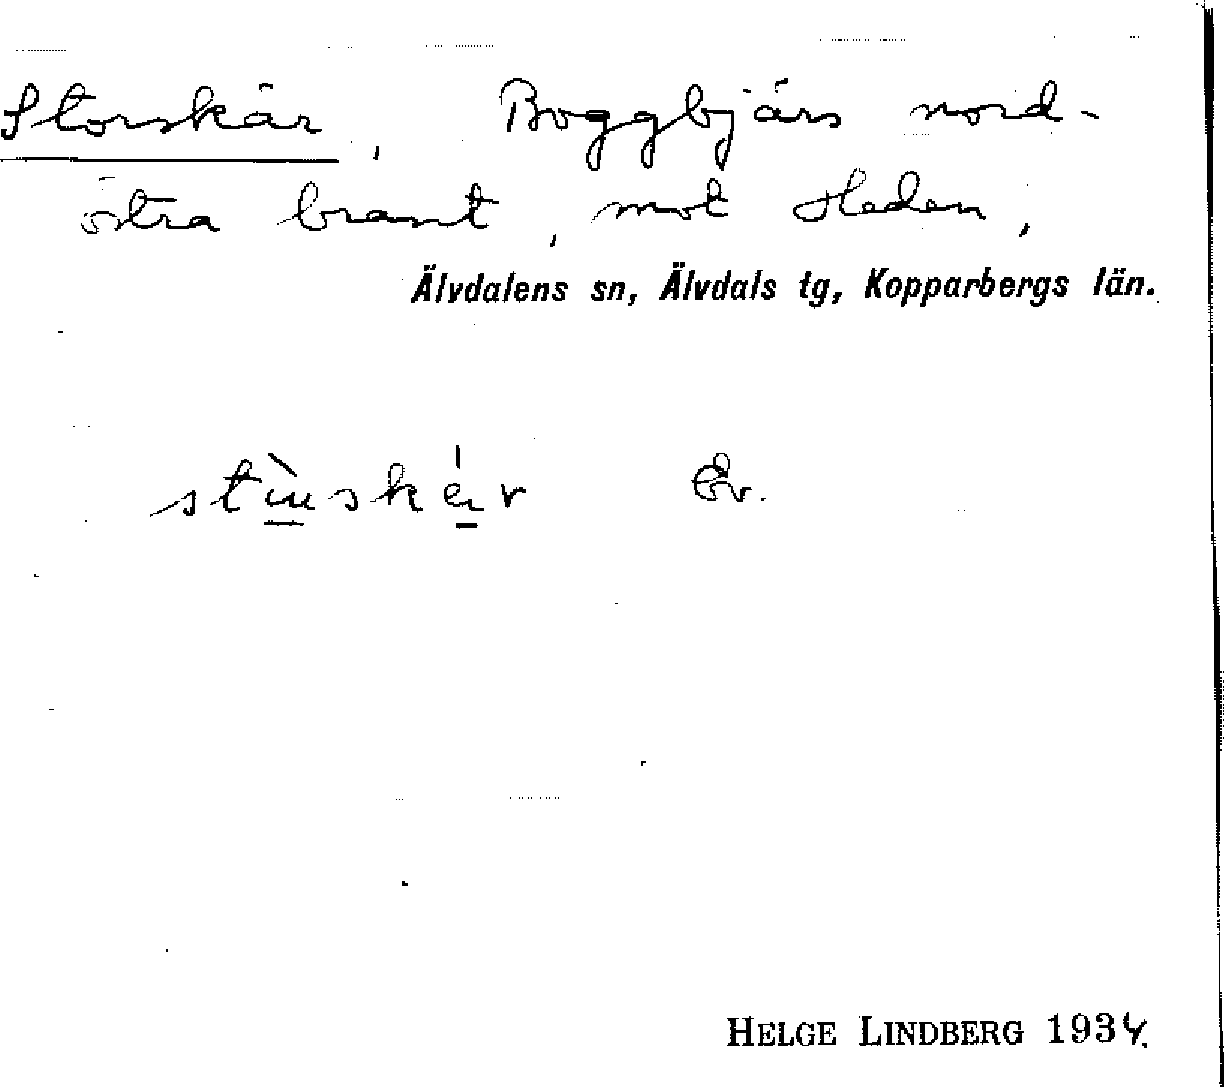 Storskär, Boggbjärs nord-
östra brant, mot Heden,
Älvdalens sn, Älvdals tg, Kopparbergs län.
Öv.
HELGE LINDBERG 1934.